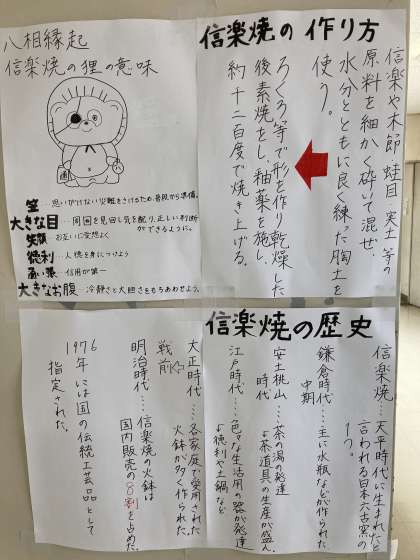 八相縁起
信楽焼の狸の意味
笠…思いがけない災難をさけるため、普段から準備。
大きな目…周囲を見回し気を配り、正しい判断
ができるように。
笑顔…お互いに愛想よく
徳利…人徳を身につけよう
通い帳…信用が第一
大きなお腹 冷静さと大胆さをもちあわせよう。
信楽焼の作り方
信楽や木節 蛙目 実土 等の
原料を細かく砕いて混ぜ、
水分とともに良く練った陶土を
使う。
ろくろ等で形を作り乾燥した
後素焼をし、釉薬を施し、
約千二百度で焼き上げる。
信楽焼の歴史
信楽焼…天平時代に生まれたと
言われる日本六古窯の
1つ。
鎌倉時代…主に水瓶などが作られた
中期
安土桃山…茶の湯の発達
時代 茶道具の生産が盛ん
江戸時代…色々な生活用の器が発達
徳利や土鍋など
大正時代…各家庭で愛用された
戦前 火鉢が多く作られた。
明治時代…信楽焼の火鉢は
国内販売の8割を占めた。
1976年には国の伝統工芸品として
指定された。